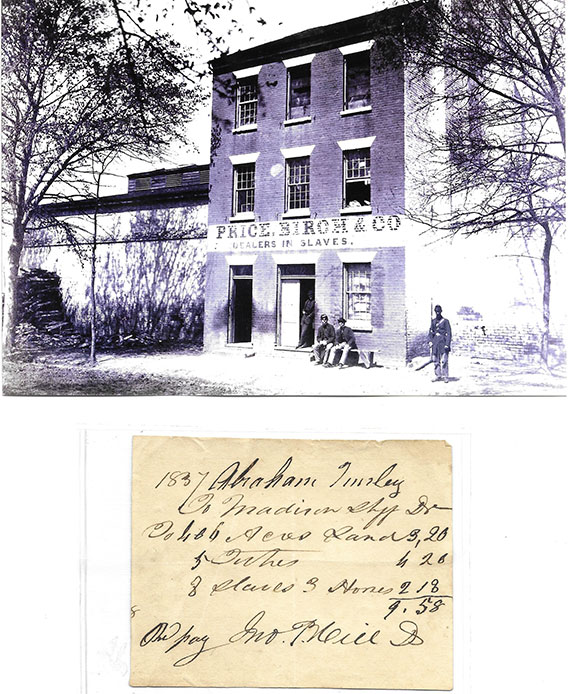 PRICE, BIRCH & CO
DEALERS IN SLAVES.
1837 Abraham
To Madison Shff Dr
To 406 Acres Land 3,20
5 Tithes 4 20
8 Slaves 3 Horses 2 18
9.58
pay Jno. P. Hill DS